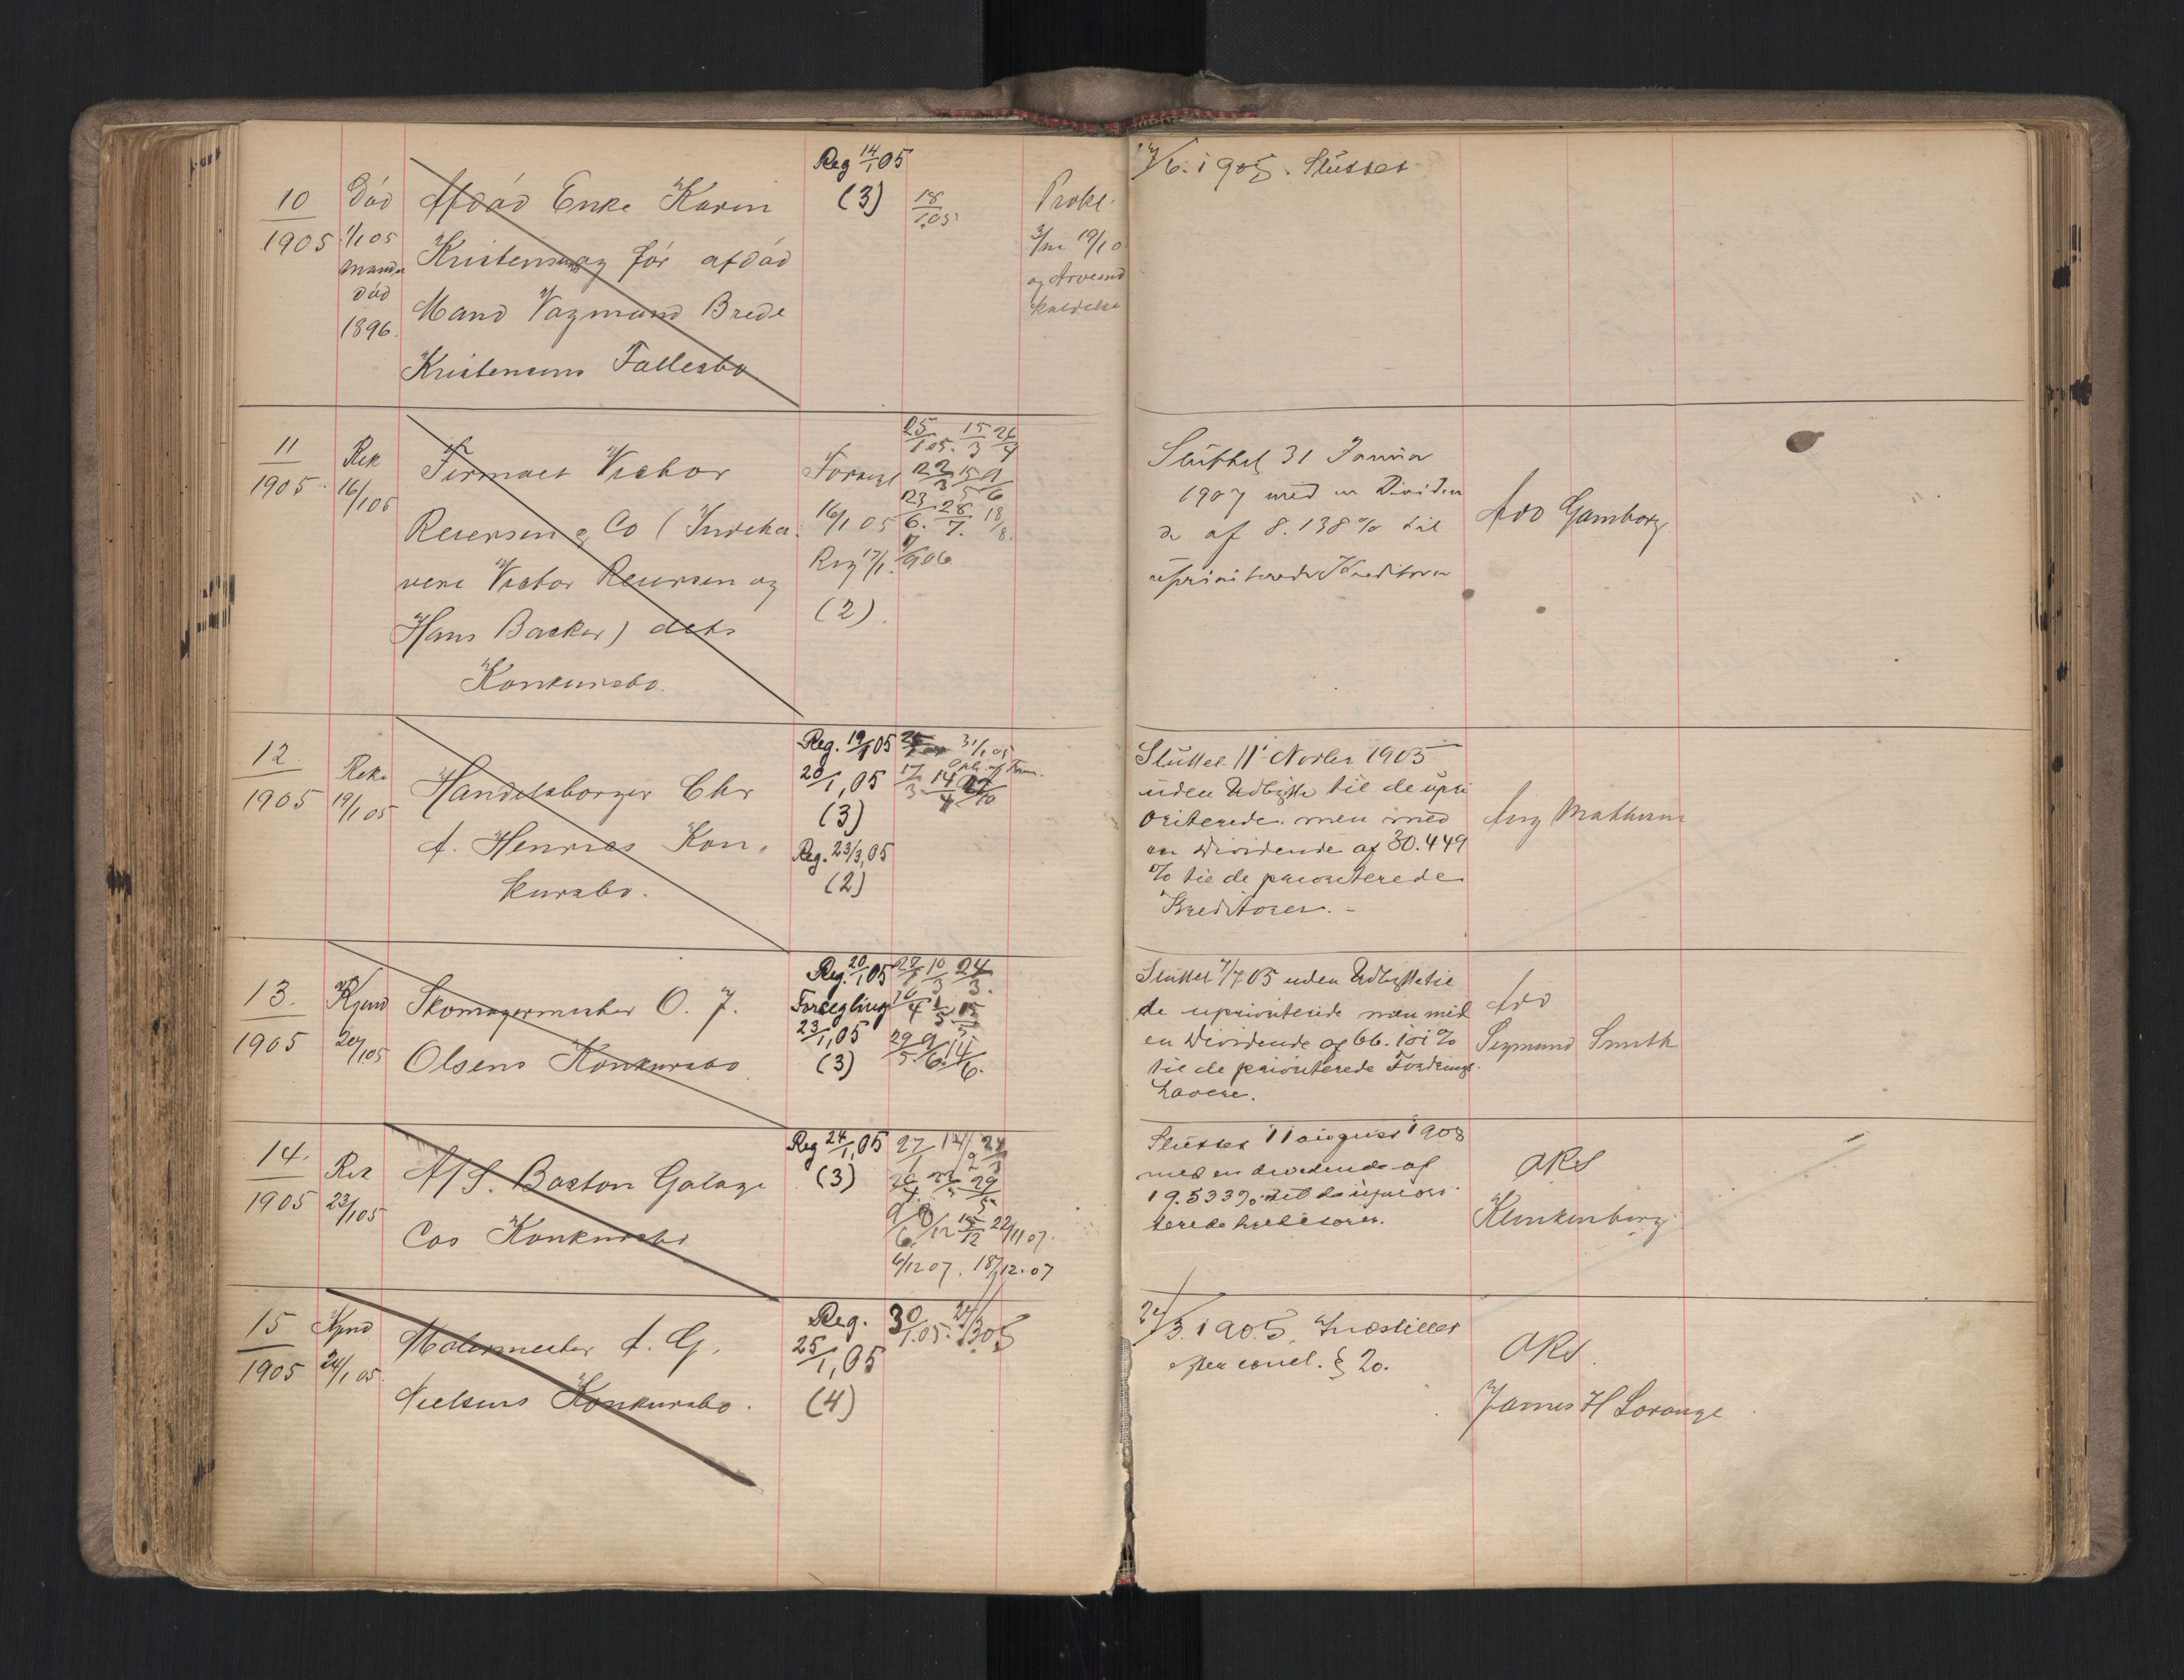 10
1905
Død
1/1 05
Mand
død
1896.
Afdød Enke Karin
Kristensen og før afdød
Mand Vagmand Brede
Kristensens Fallesbo
Reg 14/1 05
(3)
18/1 05
Prokl.
3/m 19/1 0
og Arveind
kaldelse
17/6. 1905. Sluttet
11
1905
Rek
16/1 05
Firmaet Victor
Reiersen & Co (Indeha
vere Victor Reiersen og
Hans Backer) dets
Konkursbo.
Forsegl
16/1 05
Reg 17/1
(2)
25/1 05. 15/3 26/4
22/3 15/5 9/6
23/6. 28/7. 18/8.
Sluttet 31 Januar
1907 med en Dividen
de af 8.138 % til
uprioriterede Kreditorer
Adv Gamborg
12
1905
Rek
19/1 05
Handelsborger Chr
A. Henries Kon,
kursbo.
Reg. 19/1 05
20/1, 05
(3)
Reg. 23/3, 05
(2)
31/1 05
17/3 14/4
Sluttet 11' Novbr 1905
uden Udbytte til de upri
oriterede men med
en Dividende af 30.449
% til de prioriterede
Kreditorer. -
Aug Mathisen
13.
1905
Kjend
20/1 05
Skomagermester O. J.
Olsens Konkursbo
Reg. 20/1 05
Forsegling
23/1, 05
(3)
27/1 10/3 24/3.
29/5. 9/6. 14/6.
Sluttet 7/7 05 uden Udbytte til
de uprioriterede men med
en Dividende af 66.101 %
til de prioriterede Fordrings
havere.
Adv
Sigmund Smith
14.
1905
Rek
23/1 05
A/S. Boston Galage
Cos Konkursbo
Reg 24/1, 05
(3)
27/1
22/11 07.
6/12 07. 18/12. 07
Sluttet 11 august 1908
med en dividende af
19.533 % til de upriori
terede kreditorer.
ORS
Klinkenberg
15
1905
Kjend
24/1 05.
Malermester A. G.
Nielsens Konkursbo.
Reg.
25/1, 05
(4)
30/1. 05. 24/3 05
24/3. 1905. Indstillet
efter concl. § 20.
ORS.
James H Lorange